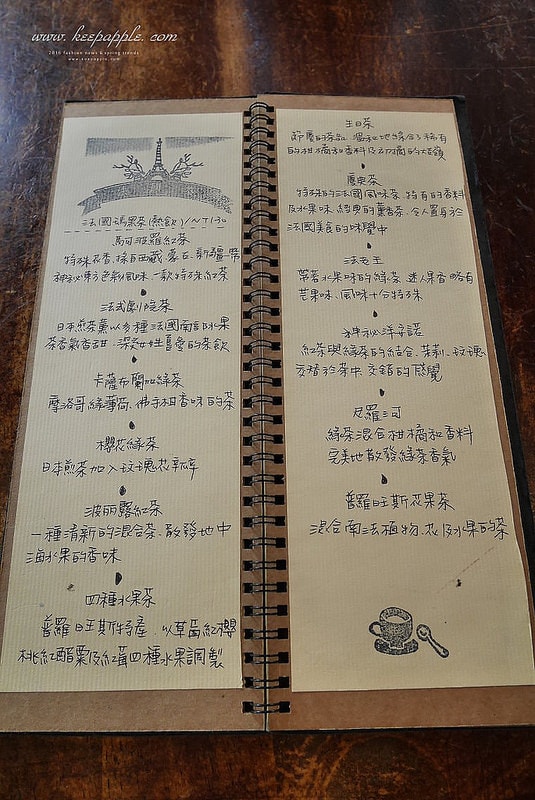 www.keepapple.com
2016 fashion news & spring trends
www.keepapple.com
法國瑪黑茶(熱飲)/NT130
馬可波羅紅茶
特殊花香、採自西藏、蒙古、新疆帶
神秘東方色彩風味、一款特殊紅茶
法式劇院茶
日本綠茶薰以多種法國南部水果
茶香氣香甜、深受女性喜愛的茶飲
卡薩布蘭加綠茶
摩洛哥綠薄荷、佛手柑香味的茶
櫻花綠茶
日本煎茶加入玫瑰花瓣
波麗露紅茶
一種清新的混合茶、散發地中
海水果的香味
四種水果茶
普羅旺斯特產、以草莓紅櫻
桃紅醋栗及紅莓四種水果調製
生日茶
節慶的茶品、溫和地綜合了稀有
的柑橘和香料及
慶典茶
特殊的法國風味茶、特有的香料
及水果味、經典的薰香茶、令人置身於
法國美食的味覺中
法老王
帶著水果味的綠茶、迷人果香略有
芒果味、風味十分特殊
神秘洋安諾
紅茶與綠茶的結合、茉莉、玫瑰
交替於茶中、交錯的感覺
尼羅河
綠茶混合柑橘和香料
完美地散發綠茶香氣
普羅旺斯花果茶
混合南法植物、花及水果的茶